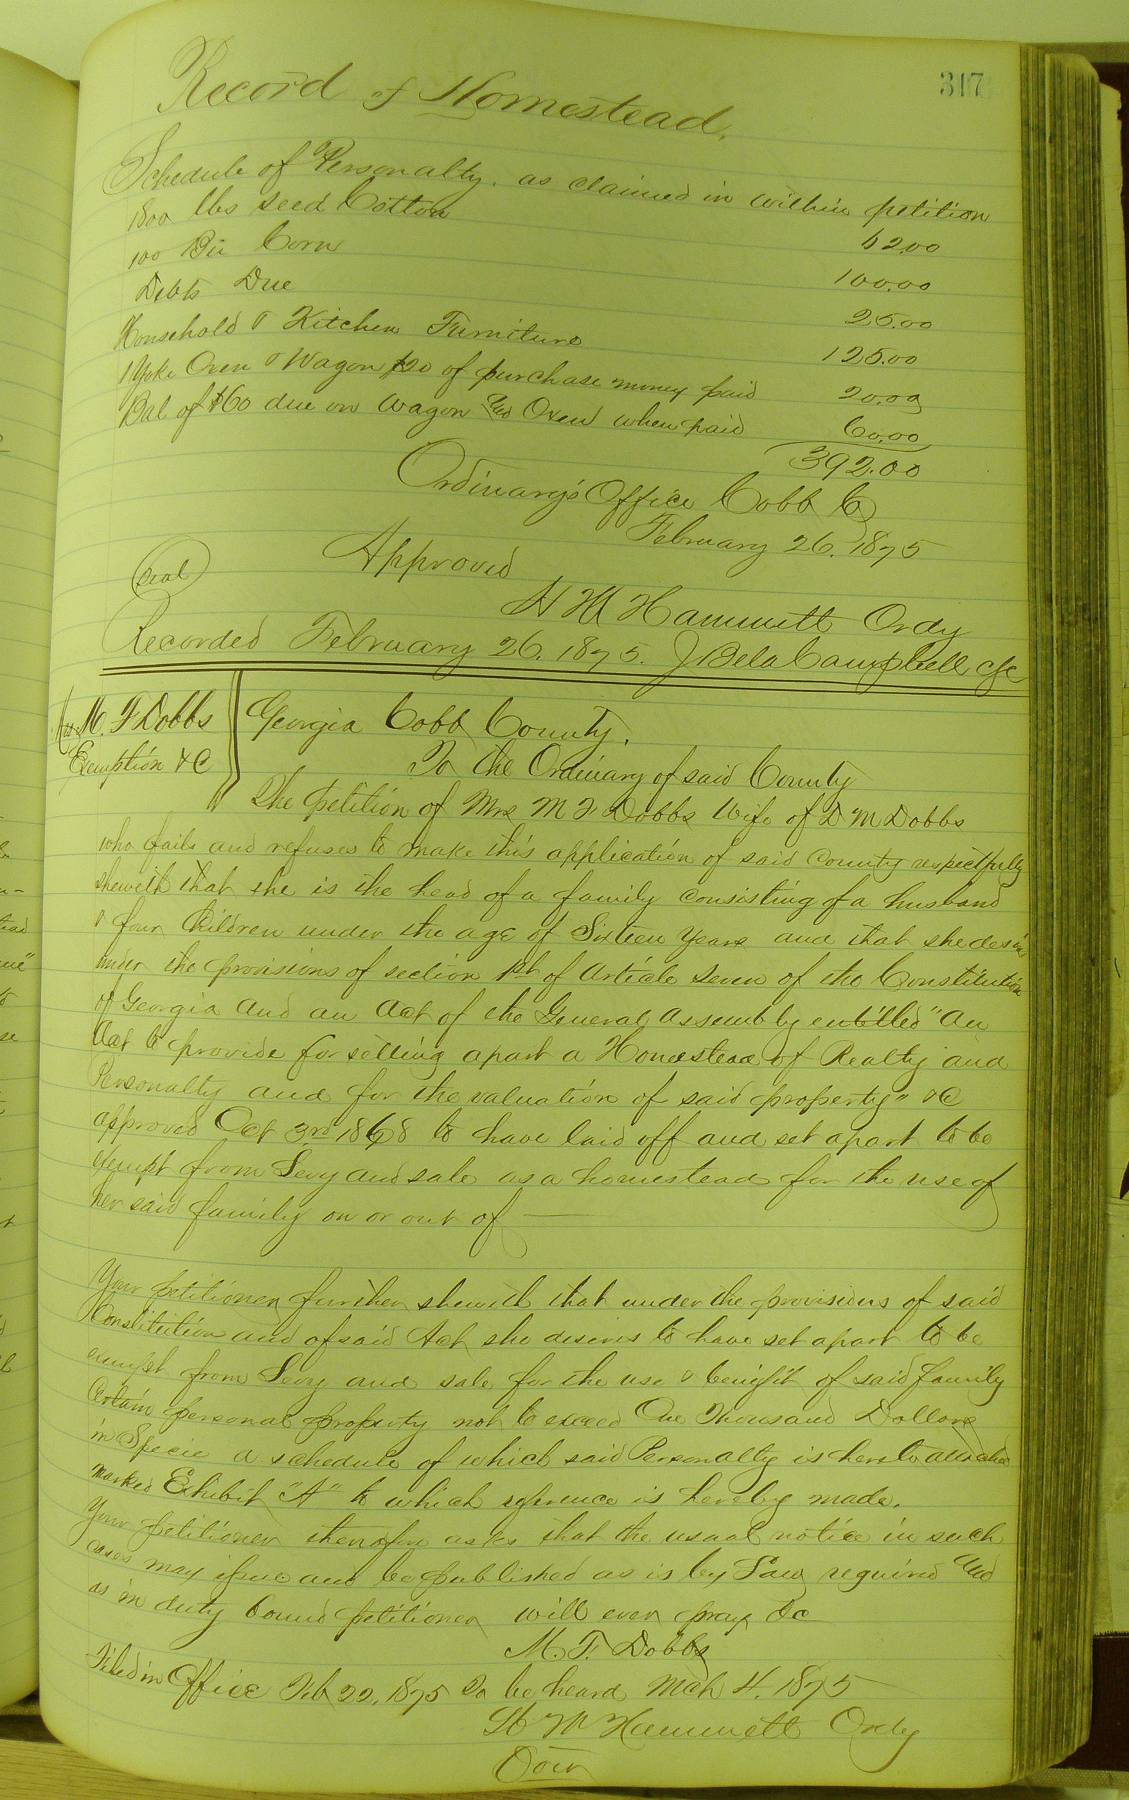 317
Record of Homestead.
Schedule of Personalty. as claimed in within petition
1800 lbs Seed Cotton 62.00
100 Bu Corn 100.00
Debts Due 25.00
Household & Kitchen Furniture 125.00
1 Yoke Oxen & Wagon $20 of purchase money paid 20.00
Bal of $60 due on Wagon and Oxen when paid 60.00
392.00
Ordinary's Office Cobb Co
February 26. 1875
Seal Approved
H M Hammett Ordy
Recorded February 26. 1875. J Bela Campbell
Mrs M. F Dobbs
Exemption &C
Georgia Cobb County.
To the Ordinary of said County
The petition of Mrs M F Dobbs Wife of D M Dobbs
who fails and refuses to make this application of said County respectfully
sheweth that she is the head of a family consisting of a husband
& four Children under the age of Sixteen Years and that she desires
under the provisions of section 1st of Article Seven of the Constitution
of Georgia and an Act of the General Assembly entitled "An
Act to provide for setting apart a Homestead of Realty and
Personalty and for the valuation of said property" &C
approved Oct 3rd 1868 to have laid off and set apart to be
exempt from Levy and sale as a homestead for the use of
her said family on or out of —
Your petitioner further sheweth that under the provisions of said
Constitution and of said Act she desires to have set apart to be
exempt from Levy and sale for the use & benifit of said family
Certain personal property not to exceed One Thousand Dollars
in Specie a schedule of which said Personalty is hereto attached
marked Exhibit "A" to which reference is hereby made.
Your petitioner therefore asks that the usual notice in such
cases may issue and be published as is by Law required And
as in duty bound petitioner will ever pray &c
M. F. Dobbs
Filed in Office Feb 22, 1875 To be heard Mch 4. 1875
H M Hammett Ordy
Over